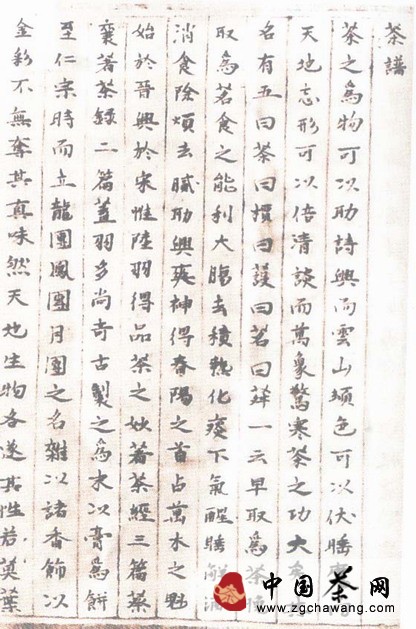 茶譜
茶之為物可以助詩興而雲山頓色可以伏睡
天地忘形可以倍清談而萬象驚寒茶之功大
名有五曰茶曰檟曰蔎曰茗曰荈一云早取為茶
取為茗食之能利大腸去積熱化痰下氣醒睡解
消食除煩去膩助興爽神得春陽之首占萬木之魁
始於晉興於宋惟陸羽得品茶之妙著茶經三篇蔡
襄著茶錄二篇蓋羽多尚奇古製之為末以膏為餅
至仁宗時而立龍團鳳團月團之名雜以諸香飾以
金彩不無奪其真味然天地生物各遂其性若莫葉
中国茶网
www.zgchawang.com